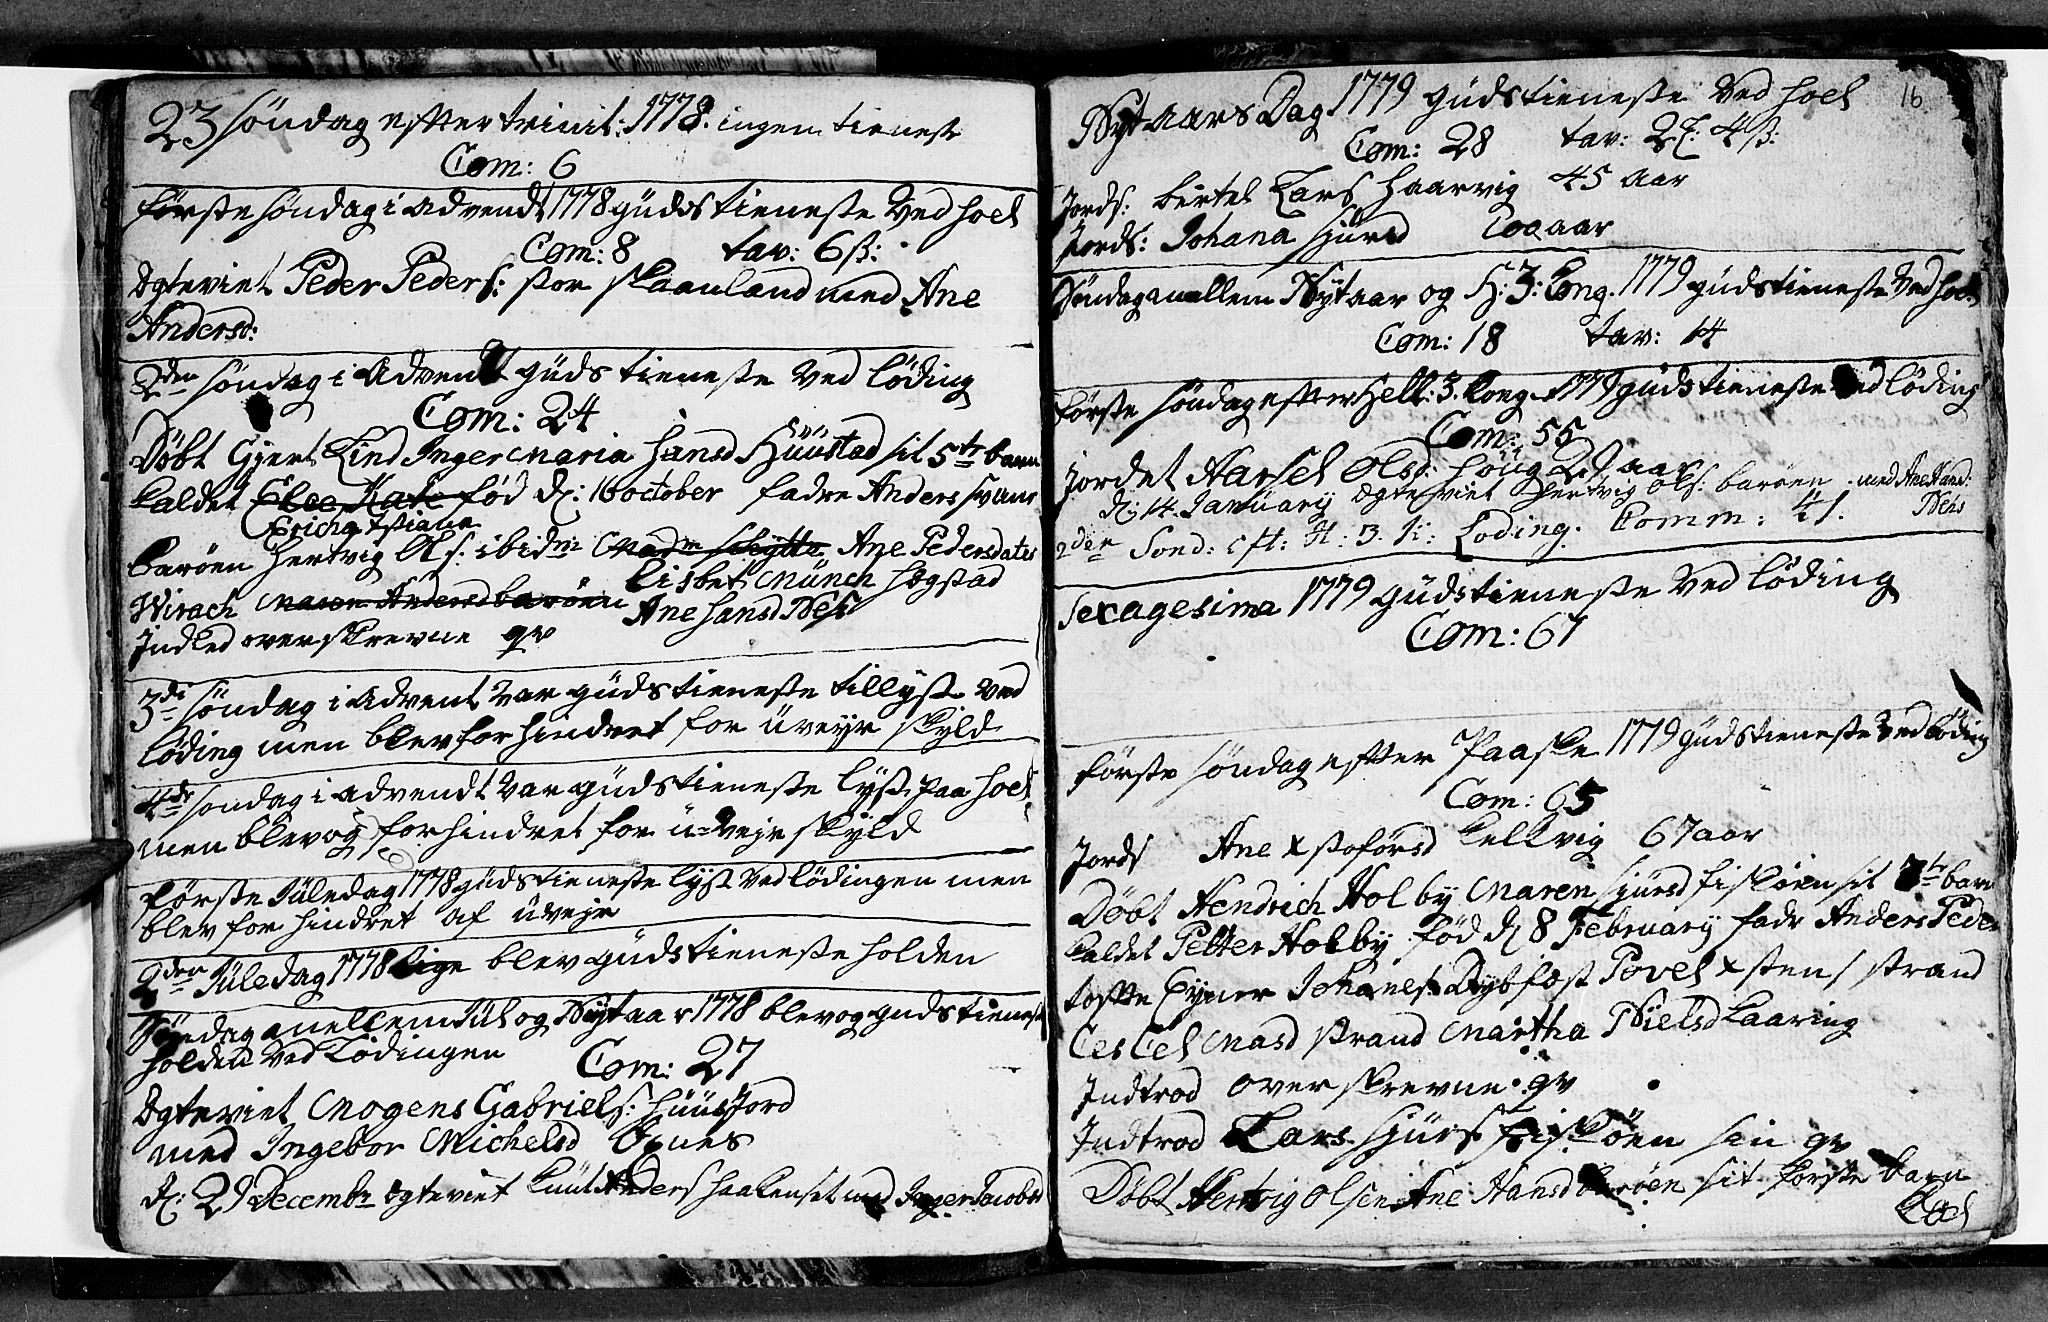 23 søndag efter trinit: 1778. ingen tienest
Com: 6
første søndag i advendt 1778 gudstieneste ved hoel
Com: 8 tav: 6 ß:
Egteviet Peder Peders: stor skaanland med Ane
Andersd:
2den søndag i Advent gudstieneste ved løding
Com: 24
Døbt Gjert Lind Inger Maria Hansd Huustad sit 5te barn
kaldet Elee Kate fød d: 16 october fadre Anders svans
Ericha xstiane
Barøen Hertvig Ols: ibidm: Madm Schytte Ane Pedersdater
Lisbet Münch Hogstad
Wirach Maren Andersd barøen Ane Hansd Nes
Indled overskrevne qv
3die søndag i advent var gudstieneste tillyst ved
løding men blev forhindret for uveyr skyld
4de søndag i advendt var gudstieneste lyst paa hoel
men blev og forhindret for u-vejr skyld
første Juledag 1778 gudstieneste lyst ved lødingen men
blev forhindret af uvejr
2den Juledag 1778 lige blev gudstieneste holden
Søndag mellem Jul og Nytaar 1778 blev og gudstieneste
holden ved Lødingen Com: 27
Egteviet Mogens Gabriels: Huusjord
med Ingebor Michelsd
d: 29 Decembr egteviet Knut Anders med Inger Jacobsd
16
Nyt aars Dag 1779 gudstieneste ved hoel
Com: 28 tav: 2 ß:
Jords: bertel Lars Haarvig 45 aar
Jords: Johana sjursd aar
Søndag mellem Nytaar og H: 3: Kong. 1779 gudstieneste ved hoel
Com: 18 tav: 14
første søndag efter Hell: 3. Kong. 1779 gudstieneste ved løding
Com: 55
Jordet Marsel Olsd: 29 aar
d: 14. January Egteviet Hertvig Ols: Barøen med Ane Hansd:
Nes
2den Sond: eft: H: 3. K: Loding. Comm: 41.
Sexagesima 1779 gudstieneste ved løding
Com: 67
første søndag efter Paaske 1779 gudstieneste ved løding
Com: 65
Jords Ane xstoforsd Kelkvig 67 aar
Døbt Hendrich Holby Maren sjursd fiskøen sit barn
kaldet Petter Holby fød d 8 February fadr Anders Peder
tofte Eyner Johanes: Dybfost Povel xstens strand
Cecel Masd strand Martha Nielsd Kaaring
Indtrod overskrevne qv
Indtrod Lars sjurs: fiskøen sin qv
Døbt Hertvig Olsen Ane Hansd barøen sit første barn